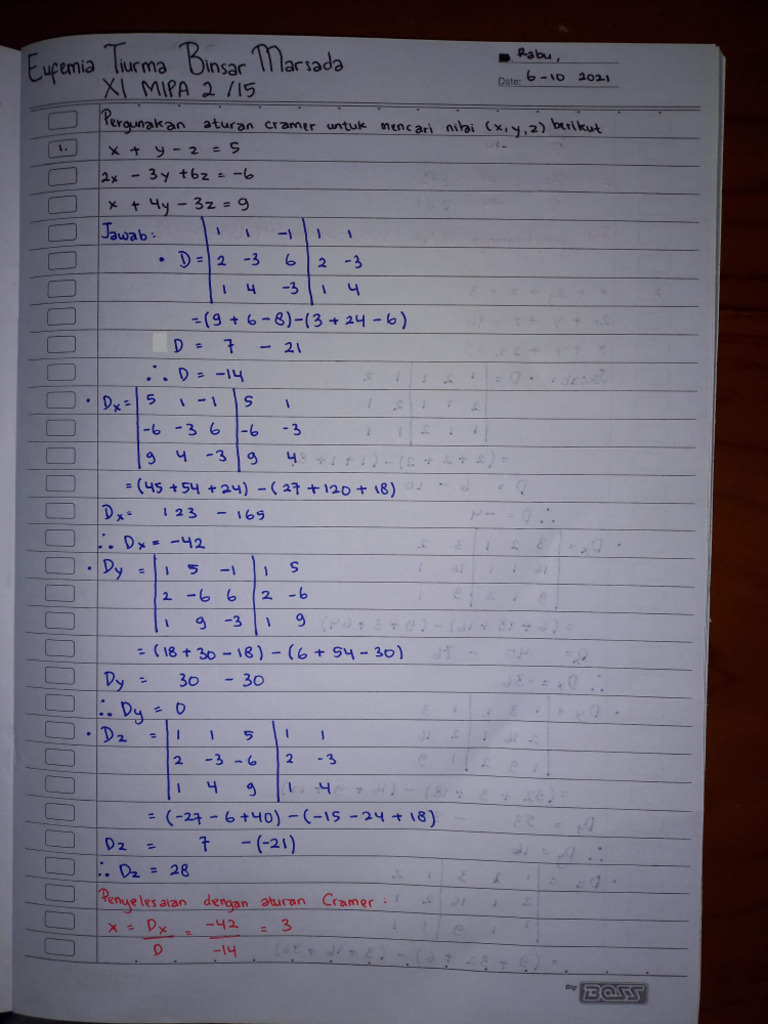 Eufemia Tiurma Binsar Marsada
XI MIPA 2 /15
Rabu,
Date: 6-10 2021
Pergunakan aturan cramer untuk mencari nilai (x, y, z) berikut
1. x + y - z = 5
2x - 3y + 6z = -6
x + 4y - 3z = 9
Jawab:
| 1 1 -1 | 1 1
• D = | 2 -3 6 | 2 -3
| 1 4 -3 | 1 4
= (9 + 6 - 8) - (3 + 24 - 6)
D = 7 - 21
∴ D = -14
• Dx = | 5 1 -1 | 5 1
| -6 -3 6 | -6 -3
| 9 4 -3 | 9 4
= (45 + 54 + 24) - (27 + 120 + 18)
Dx = 123 - 165
∴ Dx = -42
• Dy = | 1 5 -1 | 1 5
| 2 -6 6 | 2 -6
| 1 9 -3 | 1 9
= (18 + 30 - 18) - (6 + 54 - 30)
Dy = 30 - 30
∴ Dy = 0
• Dz = | 1 1 5 | 1 1
| 2 -3 -6 | 2 -3
| 1 4 9 | 1 4
= (-27 - 6 + 40) - (-15 - 24 + 18)
Dz = 7 - (-21)
∴ Dz = 28
Penyelesaian dengan aturan Cramer:
x = Dx/D = -42/-14 = 3
BOSS